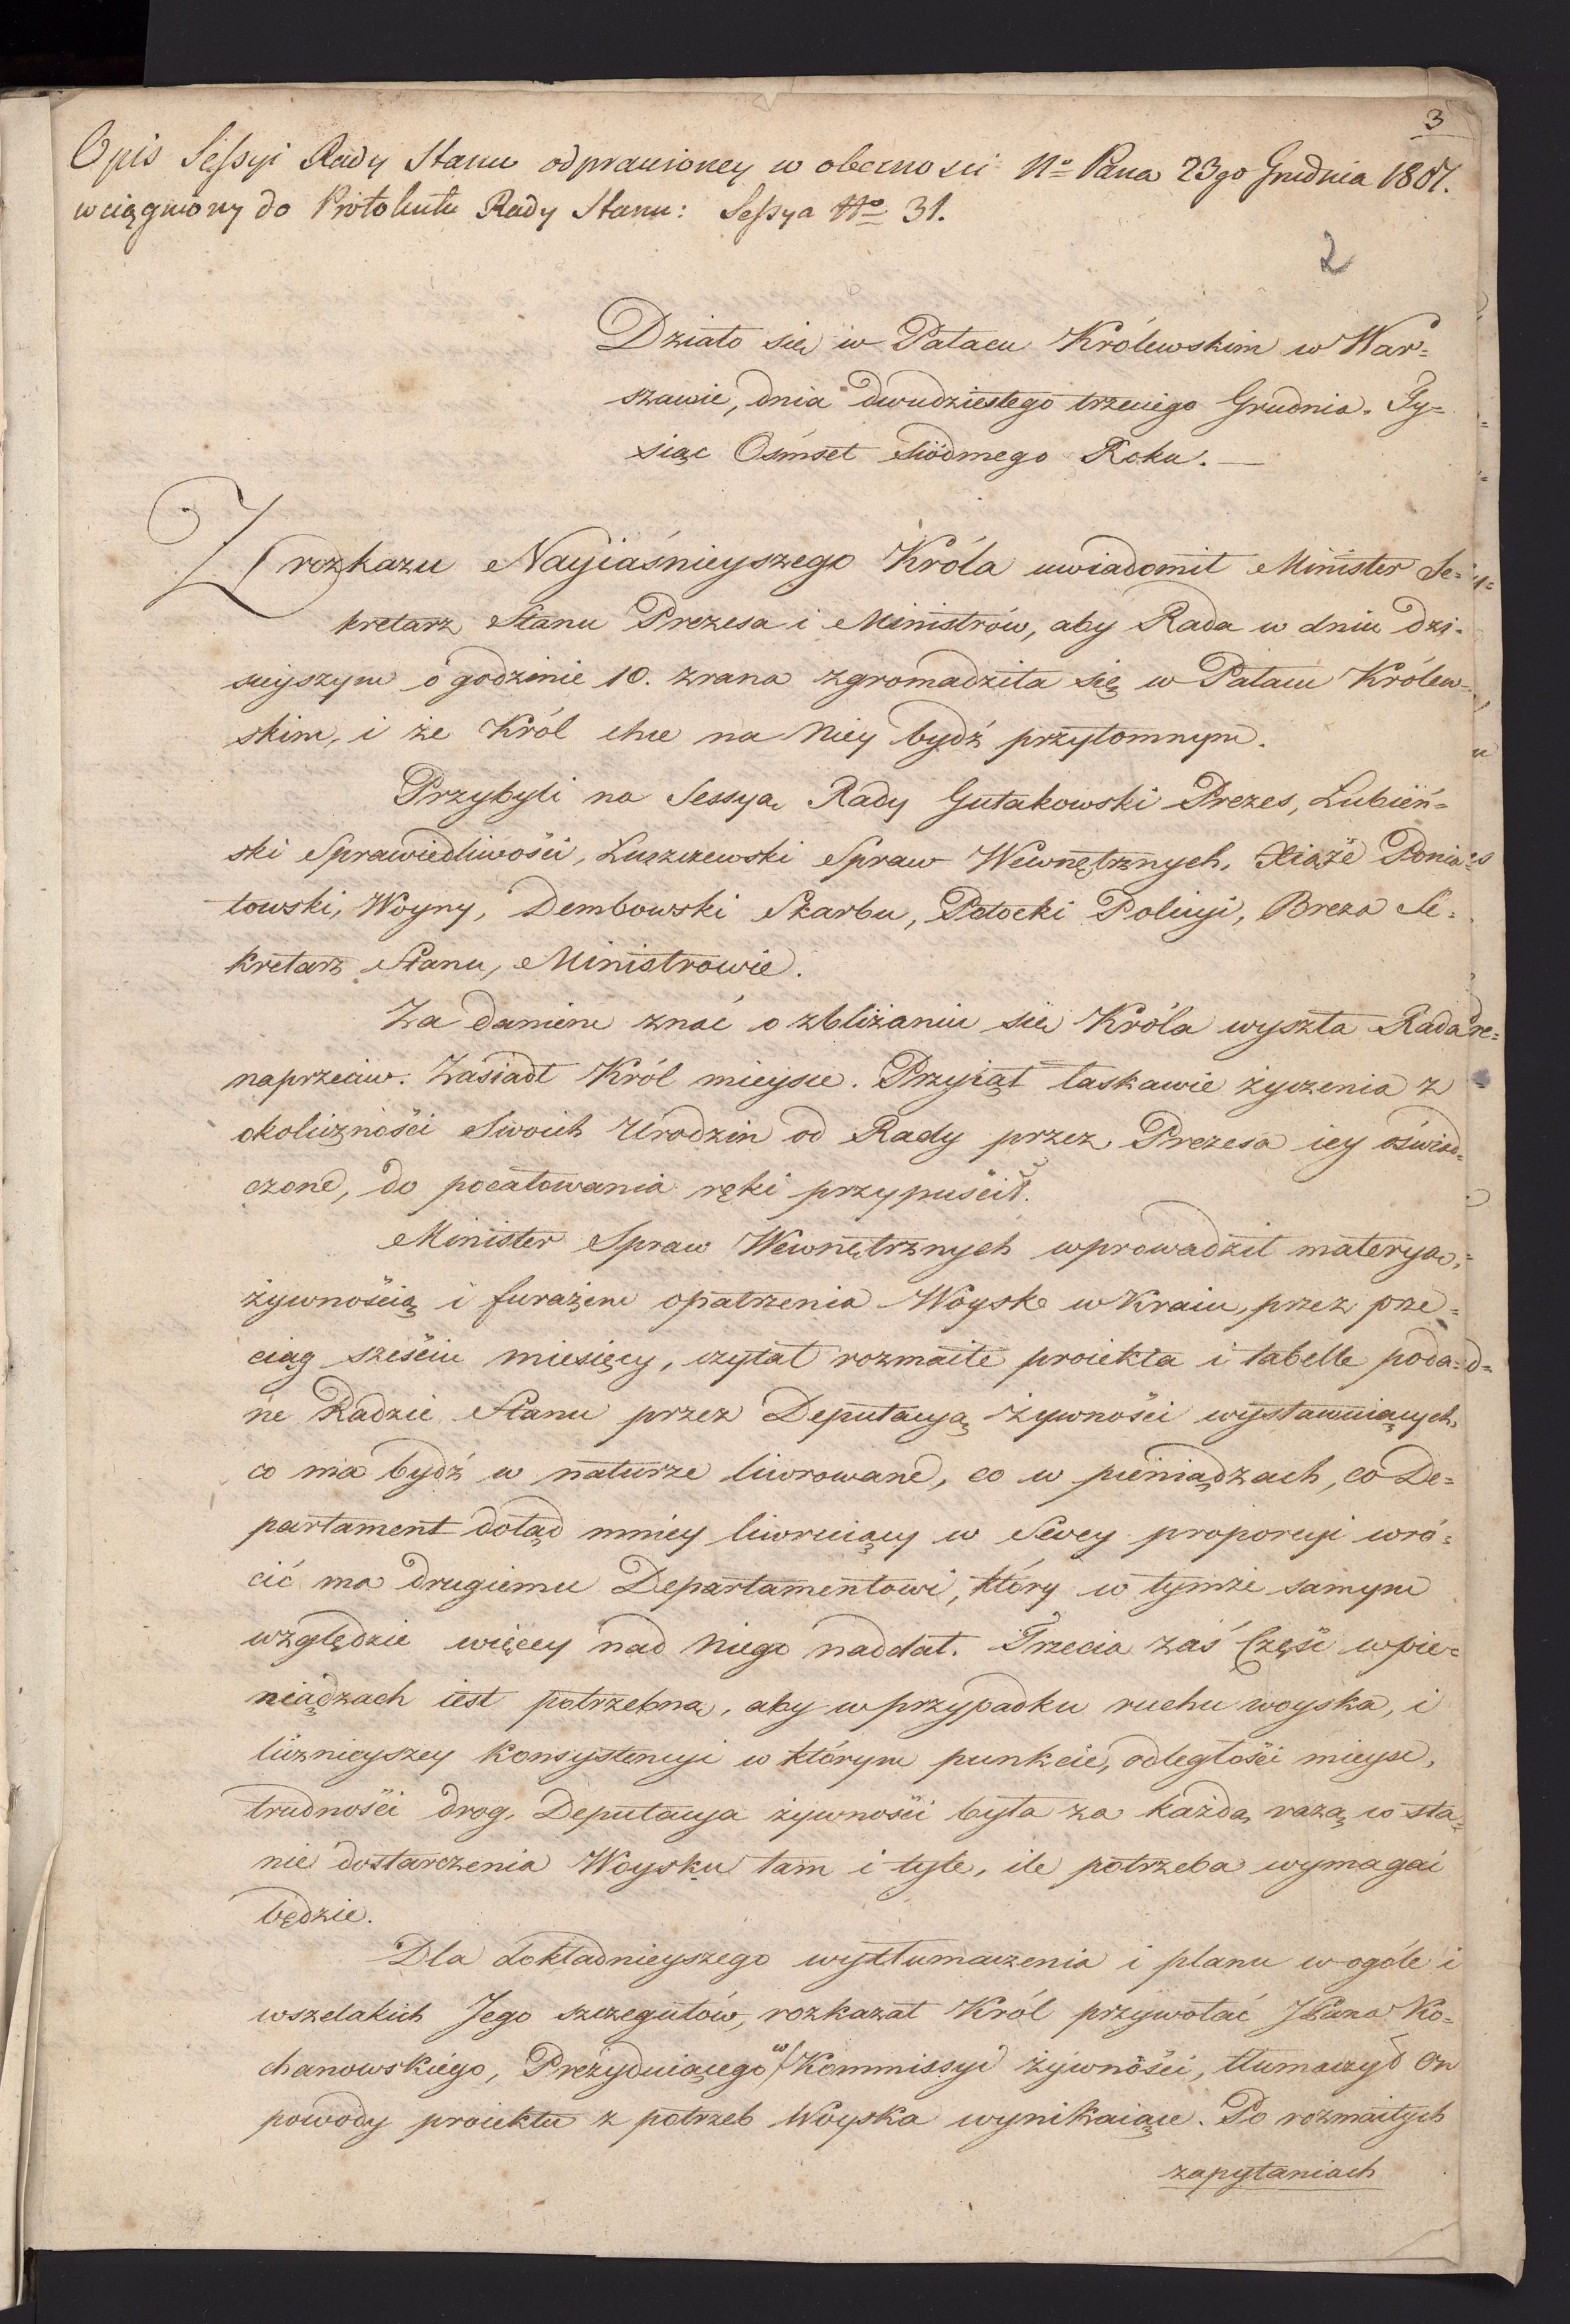 3
Opis Sessyi Rady Stanu odprawioney w obecnosci No Pana 23go Grudnia 1807.
wciągniony do Protokułu Rady Stanu: Sessya No 31.
2
Działo się w Pałacu Królewskim w War=
szawie, dnia dwudziestego trzeciego Grudnia. Ty=
siąc Osmset siódmego Roku. —
Z rozkazu Nayiaśnieyszego Króla uwiadomił Minister Se=
kretarz Stanu Prezesa i Ministrów, aby Rada w dniu dzi=
sieyszym o godzinie 10. zrana zgromadziła się w Pałacu Królew=
skim, i że Król chce na Niey bydź przytomnym.
Przybyli na Sessyą Rady Gutakowski Prezes, Łubień=
ski Sprawiedliwości, Łuszczewski Spraw Wewnętrznych, Xiąże Ponia=
towski, Woyny, Dembowski Skarbu, Potocki Policyi, Breza Se=
kretarz Stanu, Ministrowie.
Za daniem znać o zbliżaniu się Króla wyszła Rada
naprzeciw. Zasiadł Król mieysce. Przyiął łaskawie życzenia z
okoliczności Swoich Urodzin od Rady przez Prezesa iey oświad=
czone, do pocałowania ręki przypuścił.
Minister Spraw Wewnętrznych wprowadził materyą,
żywnością i furażem opatrzenia Woyska w Kraiu, przez prze=
ciąg sześciu miesięcy, czytał rozmaite proiekta i tabelle poda=
ne Radzie Stanu przez Deputacyą żywności wystawuiących,
co ma bydź w naturze liwrowane, co w pieniądzach, co De=
partament dotąd mniey liwruiący w Swey proporcyi wró=
cić ma drugiemu Departamentowi, który w tymże samym
względzie więcey nad Niego naddał. Trzecia zaś Część w pie=
niądzach iest potrzebna, aby w przypadku ruchu woyska, i
licznieyszey konsystencyi w którym punkcie, odległości mieysc,
trudności drog, Deputacya żywności była za każdą razą w sta=
nie dostarczenia Woysku tam i tyle, ile potrzeba wymagać
będzie.
Dla dokładnieyszego wytłumaczenia i planu w ogóle i
wszelakich Jego szczegułów, rozkazał Król przywołać JPana Ko=
chanowskiego, Prezyduiącego w Kommissyi żywności, tłumaczył On
powody proiektu z potrzeb Woyska wynikaiące. Po rozmaitych
zapytaniach